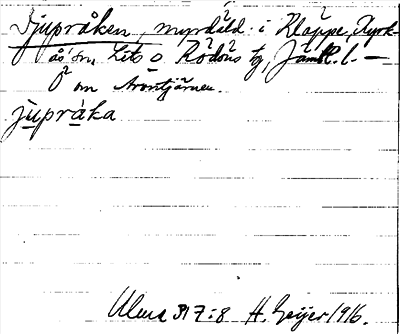 Djupråken, myrdäld i Kläppe, Kyrk-
ås sn, Lits o Rödöns tg, Jämtl. l. —
O om Aröntjärnen.
jupràka
Ulma 317:8 H. Geijer 1916.